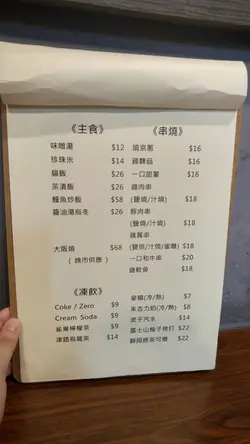 《主食》
味噌湯 $12
珍珠米 $14
貓飯 $26
茶漬飯 $26
鰻魚炒飯 $58
醬油湯烏冬 $26
大阪燒 $68
( 晚市供應 )
《串燒》
燒京蔥 $16
雞髀菇 $16
一口甜薯 $16
雞肉串
(鹽燒/汁燒) $18
豚肉串
(鹽燒/汁燒) $18
雞翼串
(鹽燒/汁燒/蜜糖) $18
一口和牛串 $20
雞軟骨 $18
《凍飲》
Coke / Zero $9
Cream Soda $9
雀巢檸檬茶 $9
津路烏龍茶 $14
麥精(冷/熱) $7
朱古力奶(冷/熱) $8
波子汽水 $14
富士山柚子梳打 $22
靜岡綠茶可樂 $22